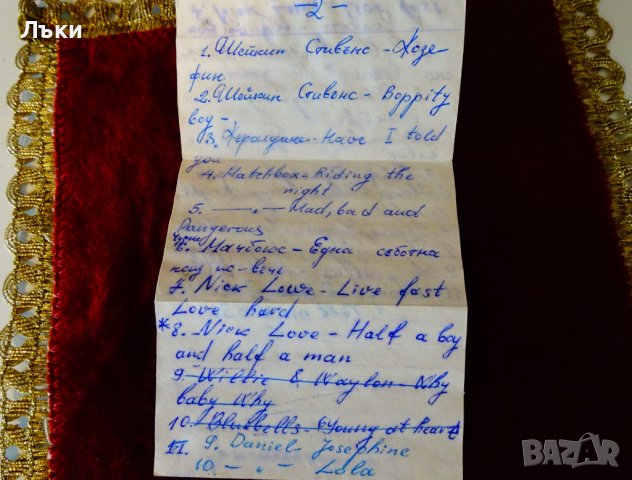 Лъки
-2-
1. Шейкин Стивънс - Жозе-
фин
2. Шейкин Стивънс - Boppity
boy -
3. Джералдине - Have I told
you
4. Matchbox - Riding the
night
5. —„— Mad, bad and
Dangerous
6. Мачбокс - Една съботна
нощ по-вече
7. Nick Lowe - Live fast
Love hard
*8. Nick Love - Half a boy
and half a man
9. Willie & Waylon - Why
baby Why
10. Bluebells - Young at heart
II. 9. Daniel - Josephine
10. - „ - Lola
BAZAR